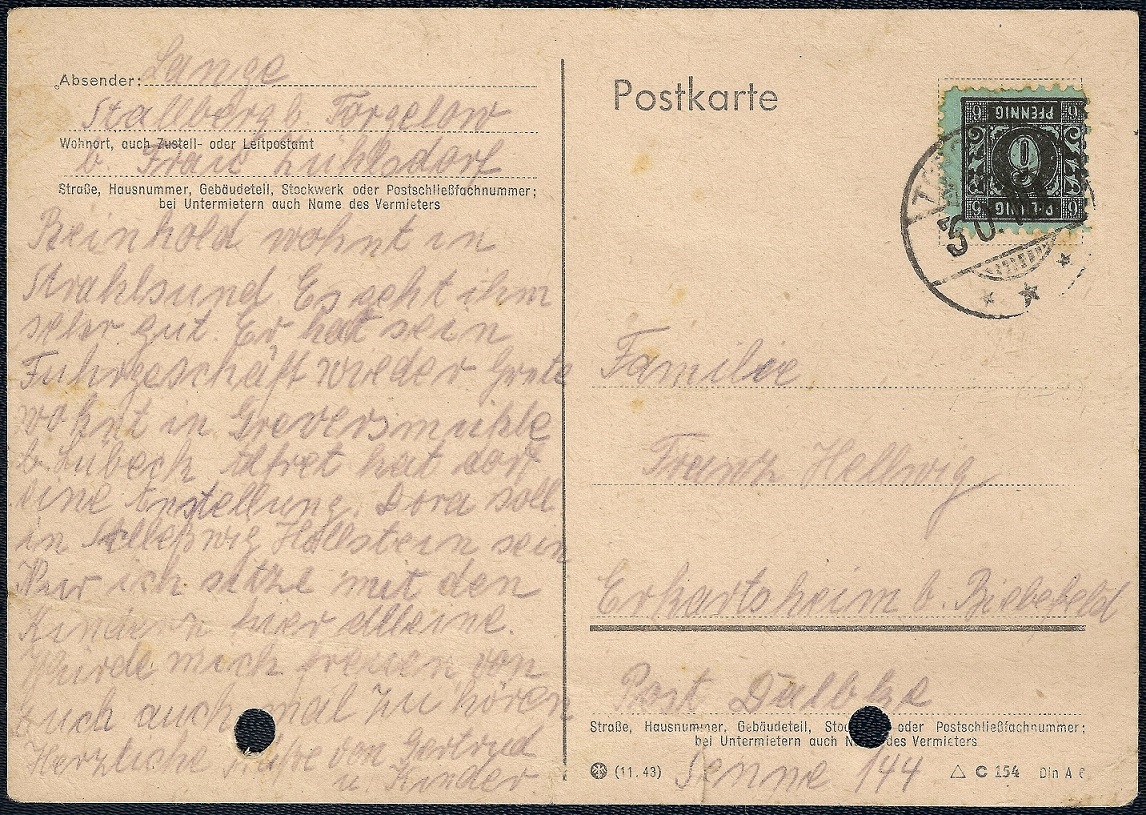 Absender: Lange
Stallberg b. Torgelow
Wohnort, auch Zustell- oder Leitpostamt
b Frau Lühlsdorf
Straße, Hausnummer, Gebäudeteil, Stockwerk oder Postschließfachnummer;
bei Untermietern auch Name des Vermieters
Reinhold wohnt in
Strahlsund Es geht ihm
sehr gut. Er hat sein
Fuhrgeschäft wieder Grete
wohnt in Greversmühle
b. Lübeck Alfret hat dort
eine Anstellung. Dora soll
in Schleßwig Hollstein sein
Nur ich sitze mit den
Kindern hier alleine.
Würde mich freuen von
Euch auch mal zu hören
Herzliche Grüße von Gertrud
u Kinder.
Postkarte
PFENNIG
9
PFENNIG
Familie
Franz Hellwig
Erkartsheim b. Biebefeld
Post Dalbke
Straße, Hausnummer, Gebäudeteil, oder Postschließfachnummer;
bei Untermietern auch des Vermieters
(11.43) Senne 144 C 154 Din A 6